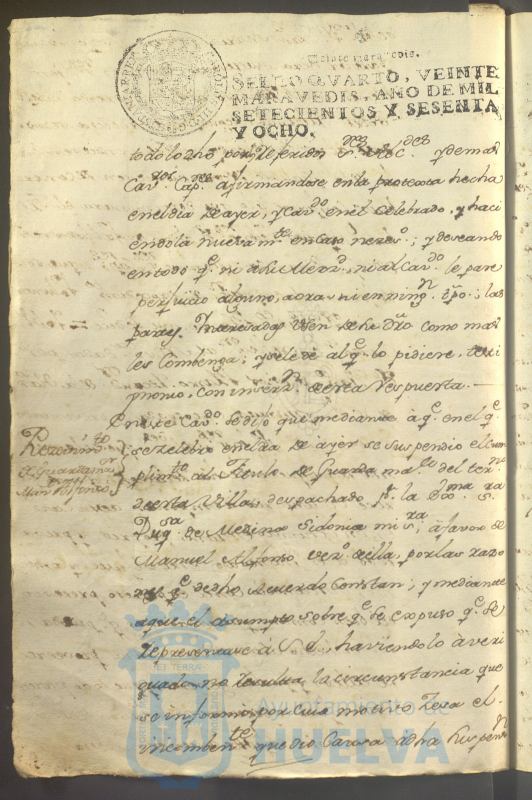 Veinte maravedis.
SELLO QVARTO, VEINTE
MARAVEDIS, AÑO DE MIL
SETECIENTOS Y SESENTA
Y OCHO.
todo lo dho por referidos y demas
Cav. Cap. afirmandose en la protexta hecha
en el dia de ayer, y Cav.do en el Celebrado, y haci
endola nueva m.te en caso neces.o; y deseando
en todo q.e ni a ni al Cav.do le pare
perjuicio alguno, aora ni en ning.n tpo; las
partes Interesadas usen de dho Dro como mas
les Combenga, y se le dé al q.e lo pidiere, testi
monio, con inser.n de esta Respuesta.
En este Cav.do se dijo que mediante à q.e en el q.e
se zelebró en el dia de ayer se suspendio el cum
plim.to al titulo de Guarda ma.or del ter.no
de esta Villa, despachado p.r la Ex.ma S.ra
Duq.sa de Medina Sidonia mi S.ra, à favor de
Manuel Alfonso vez.o de ella, por las razo
nes q.e de dho Acuerdo Constan; y mediante
aque el asumpto sobre q.e se expuso q.e se
representase à S. E. haviendolo à veri
guado no resulta la circunstancia que
se informó, por cuio motivo zesa el
incomben.te que dio Causa à dha suspens.n
Rezevim.to
de Guarda ma.or
Man.l Alfonso
EST TERRÆ
Ayuntamiento de
HUELVA